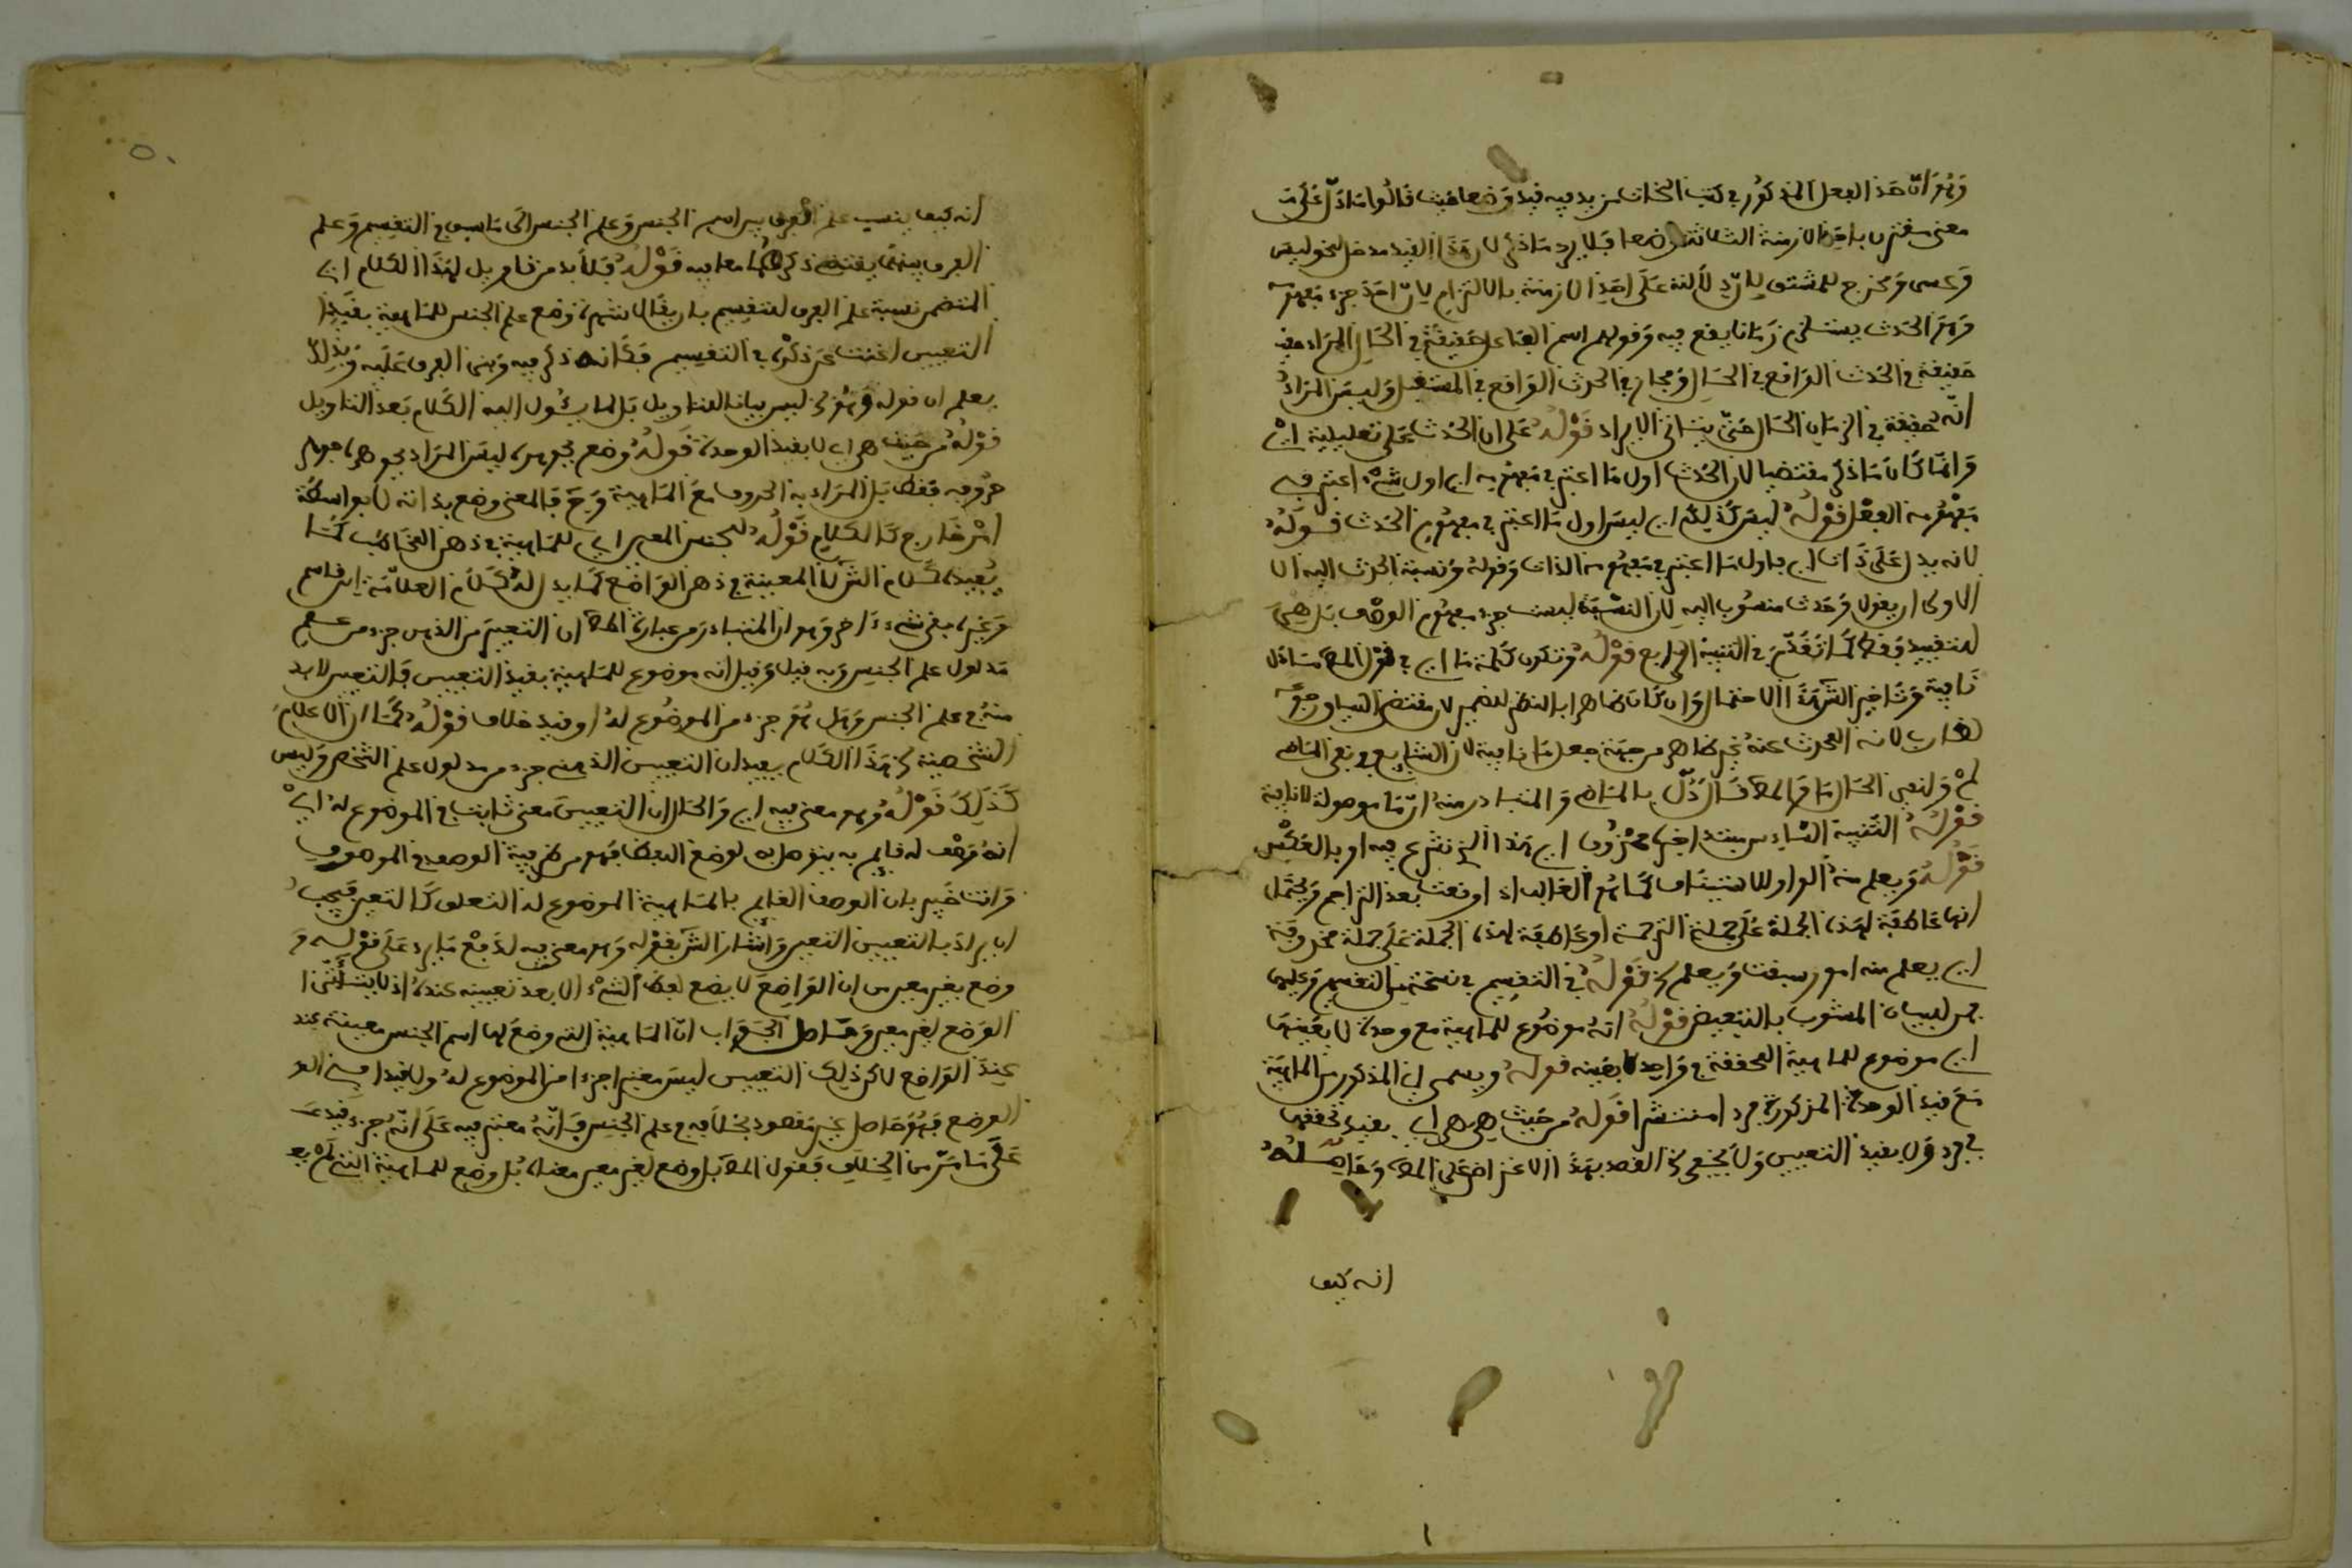 وهو ان هذا الفعل المذكور في كتب النحاة يزيد فيه قيد وضعا حيث قالوا ما دل على
معنى مقترن باحد الازمنة الثلاثة وضعا فلا يرد ما ذكر لان هذا القيد مدخل لنحو ليس
وعسى ومخرج للمشتق لان دلالته على احد الازمنة بالالتزام لان احد جزء مفهومه
وهو الحدث يستلزم زمانا يقع فيه وقولهم اسم الفاعل حقيقة في الحال المراد منه
حقيقة في الحدث الواقع في الحال ومجاز في الحدث الواقع في المستقبل وليس المراد
انه حقيقة في الزمان الحال حتى يتاتى الايراد قوله على ان الحدث على تعليلية اي
وانما كان ما ذكر مقتضيا لان الحدث اول ما اعتبر في مفهومه اي اول شيء اعتبر في
مفهوم الفعل قوله ليس كذلك اي ليس اول ما اعتبر في مفهومه الحدث قوله
لانه يدل على ذات اي فاول ما اعتبر في مفهومه الذات وقوله ونسبة الحدث اليه الا
الاولى ان يقول وحدث منسوب اليه لان النسبة ليست جزء مفهوم الوصف بل هي
للتقييد فقط كما تقدم في التنبيه الرابع قوله وتكون كلمة ما اي في قول المص ما دل
نافية وتاخير الش هذا الاحتمال وان كان ظاهرا بالنظر للضمير لان مقتضى السياق رجوعه
لضارب لانه المحدث عنه غير ظاهر من جهة جعل ما نافية لان الشايع في نفي الماضي
لم ولنفي الحال ما والمص قال دل بالماضي والمتبادر منه ان ما موصولة لا نافية
قوله التنبيه السادس مبتدا خبره محذوف اي هذا الذي نشرع فيه او بالعكس
قوله ويعلم منه الواو للاستيناف كما هو الغالب اذا وقعت بعد التراجم ويحتمل
انها عاطفة لهذه الجملة على جملة الترجمة او عاطفة لهذه الجملة على جملة محذوفة
اي يعلم منه امور سبقت ويعلم الخ قوله في التقسيم في نسخة من التقسيم وعليها
فمن للبيان المشوب بالتبعيض قوله انه موضوع للماهية مع وحدة لا بعينها
اي موضوع للماهية المحققة في واحد لا بعينه قوله ويسمى اي المذكور من الماهية
مع قيد الوحدة المذكورة فردا منتشرا قوله من حيث هي هي اي بقيد تحققها
في فرد ولا بقيد التعيين ولا يخفى ان القصد بهذا الاعتراض على المص وحاصله
انه كيف
انه كيف ينسب علم الفرق بين اسم الجنس وعلم الجنس الى ما سبق في التقسيم وعلم
الفرق بينهما يقتضي ذكرهما معا فيه قوله فلا بد من تاويل لهذا الكلام اي
المتضمن نسبة علم الفرق للتقسيم بان يقال ان شهرة وضع علم الجنس للماهية بقيد
التعيين اغنت عن ذكره في التقسيم فكانه ذكر فيه وبنى الفرق عليه وبذلك
يعلم ان قوله وهو الخ ليس بيانا للتاويل بل لما يئول اليه الكلام بعد التاويل
قوله من حيث هي اي لا بقيد الوحدة قوله وضع بجوهره ليس المراد بجوهره جوهر
حروفه فقط بل المراد به الحروف مع الماهية وح فالمعنى وضع بذاته لا بواسطة
امر خارج كاللام قوله للجنس المعين اي للماهية في ذهن المخاطب كما
يفيده كلام الش لا المعينة في ذهن الواضع كما يدل له كلام العلامة ابن قاسم
وغيره بقي شيء اخر وهو ان المتبادر من عبارة المص ان التعيين الذهني جزء من
مدلول علم الجنس وبه قيل وقيل انه موضوع للماهية بقيد التعيين فالتعيين لا بد
منه في علم الجنس وهل هو جزء من الموضوع له او قيد خلاف قوله كما ان الاعلام
الشخصية الخ هذا الكلام يفيد ان التعيين الذهني جزء من مدلول علم الشخص وليس
كذلك قوله وهو معنى فيه اي والحال ان التعيين معنى ثابت في الموضوع له اي
انه وصف له قايم به يتوصل به لوضع اللفظ فهو من ظرفية الوصف في الموصوف
وانت خبير بان الوصف القايم بالماهية الموضوع له التعلق كالتعين فيجب
ان يراد بالتعيين التعين واشار الش بقوله وهو معنى فيه لدفع ما يرد على قوله و
وضع بغير معين من ان الواضع لا يضع لفظ الشيء الا بعد تعيينه عنده اذ لا يتاتى
الوضع لغير معين وحاصل الجواب ان الماهية التي وضع لها اسم الجنس معينة عند
عند الواضع لاكن ذلك التعيين ليس معتبرا جزءا من الموضوع له ولا قيدا في الو
الوضع فهو حاصل غير مقصود بخلافه في علم الجنس فانه معتبر فيه على انه جزء او قيد
على ما مر من الخلاف فقول المص بل وضع لغير معين معناه بل وضع للماهية التي لم يع